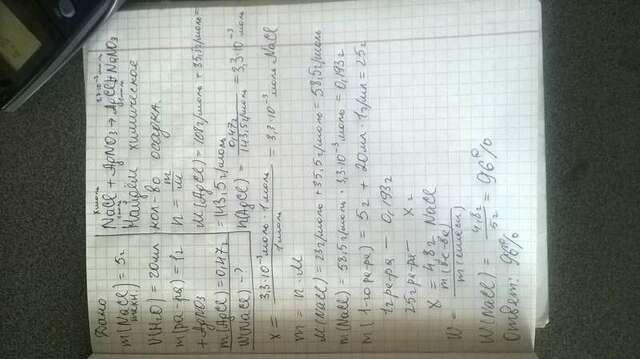 Дано
m(NaCl) = 5г
техн
V(H₂O) = 20мл
m(ра-ра) = 1г
+ AgNO₃
m(AgCl) = 0,47г
W(NaCl) - ?
x моль 3,3·10⁻³ моль
NaCl + AgNO₃ → AgCl + NaNO₃
1 моль 1 моль
Найдём химическое
кол-во осадка.
n = m/M
M(AgCl) = 108г/моль + 35,5г/моль =
= 143,5г/моль
n(AgCl) = 0,47г / 143,5г/моль = 3,3·10⁻³ моль
x = 3,3·10⁻³ моль · 1 моль / 1 моль = 3,3·10⁻³ моль NaCl
m = n · M
M(NaCl) = 23г/моль + 35,5г/моль = 58,5г/моль
m(NaCl) = 58,5г/моль · 3,3·10⁻³ моль = 0,193г
m(1-го ра-ра) = 5г + 20мл · 1г/мл = 25г
1г ра-ра — 0,193г
25г ра-ра — xг
x = 4,8г NaCl
W = m(ве-ва) / m(смеси)
W(NaCl) = 4,8г / 5г = 96%
Ответ: 96%